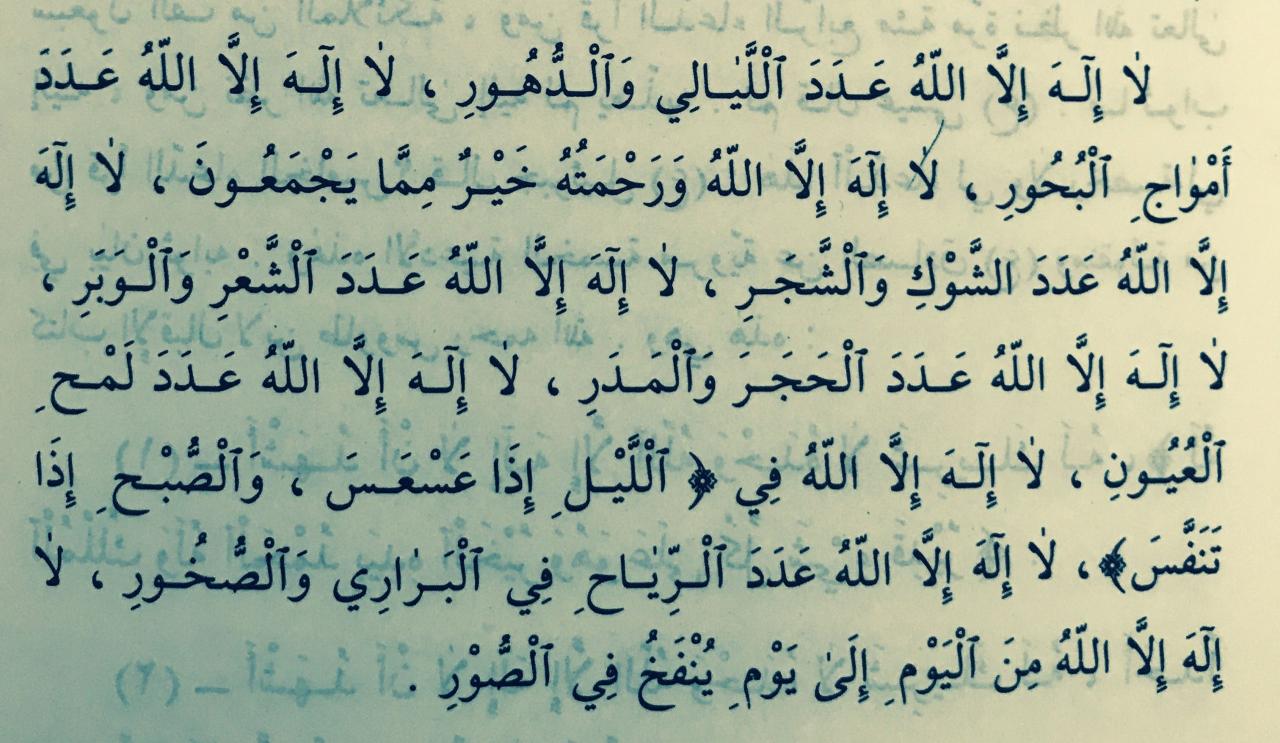 لٰا إِلٓـهَ إِلَّا اللّهُ عَـدَدَ ٱلْلَّيٰـالِي وَٱلْـدُّهُـورِ ، لٰا إِلٓـهَ إِلَّا اللّهُ عَـدَدَ
أَمْوٰاجِ ٱلْبُحُورِ ، لٰا إِلٓهَ إِلَّا اللّهُ وَرَحْمَتُهُ خَيْـرٌ مِمَّا يَجْمَعُـونَ ، لٰا إِلٓهَ
إِلَّا اللّهُ عَدَدَ الشَّوْكِ وَٱلْشَّجَـرِ ، لٰا إِلٓهَ إِلَّا اللّهُ عَـدَدَ ٱلْشَّعْرِ وَٱلْـوَبَرِ ،
لٰا إِلٓـهَ إِلَّا اللّهُ عَـدَدَ ٱلْحَجَـرَ وَٱلْمَـدَرِ ، لٰا إِلٓـهَ إِلَّا اللّهُ عَـدَدَ لَمْـحِ
ٱلْعُيُـونِ ، لٰا إِلٓـهَ إِلَّا اللّهُ فِي ﴿ ٱلْلَّيْـلِ إِذَا عَسْعَـسَ ، وَٱلْصُّبْـحِ إِذَا
تَنَفَّسَ﴾، لٰا إِلٓهَ إِلَّا اللّهُ عَدَدَ ٱلْـرِّيٰـاحِ فِي ٱلْبَـرٰارِي وَٱلْصُّخُـورِ ، لٰا
إِلٓهَ إِلَّا اللّهُ مِنَ ٱلْيَوْمِ إِلَىٰ يَوْمِ يُنْفَخُ فِي ٱلْصُّوْرِ .